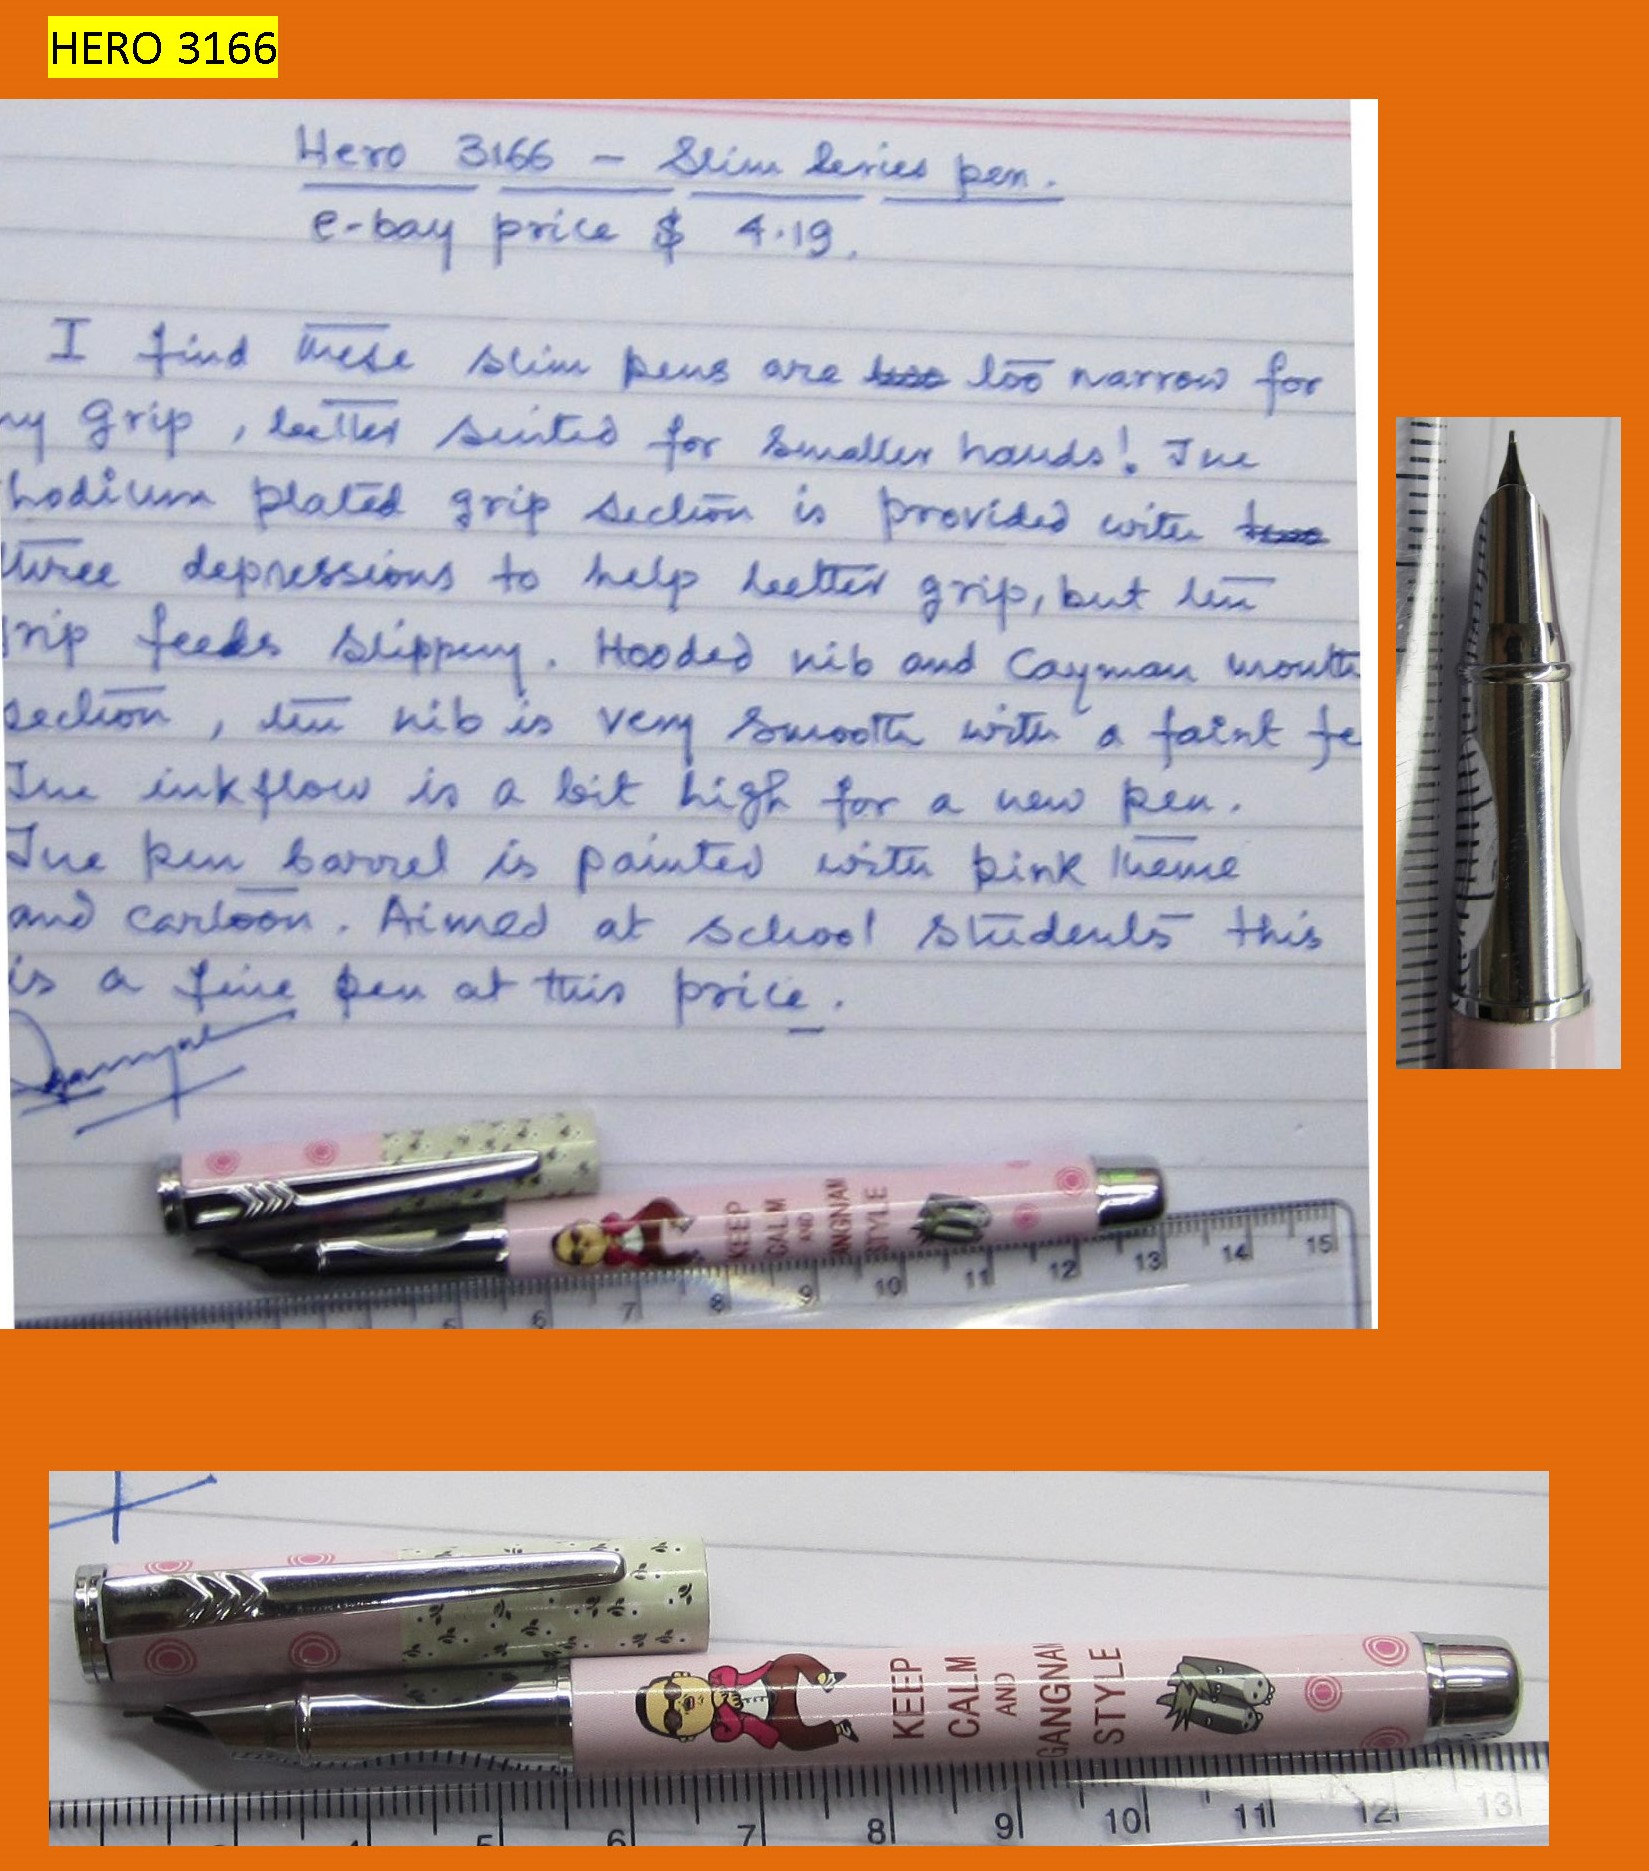 HERO 3166
Hero 3166 - Slim Series pen.
e-bay price $ 4.19.
I find these slim pens are too narrow for
my grip, better suited for smaller hands! The
rhodium plated grip section is provided with
three depressions to help better grip, but the
grip feels slippery. Hooded nib and Cayman mouth
section, the nib is very smooth with a faint fe
The inkflow is a bit high for a new pen.
The pen barrel is painted with pink theme
and cartoon. Aimed at school students this
is a fine pen at this price.
KEEP
CALM
AND
GANGNAM
STYLE
5 6 7 8 9 10 11 12 13 14 15
KEEP
CALM
AND
GANGNAM
STYLE
5 6 7 8 9 10 11 12 13